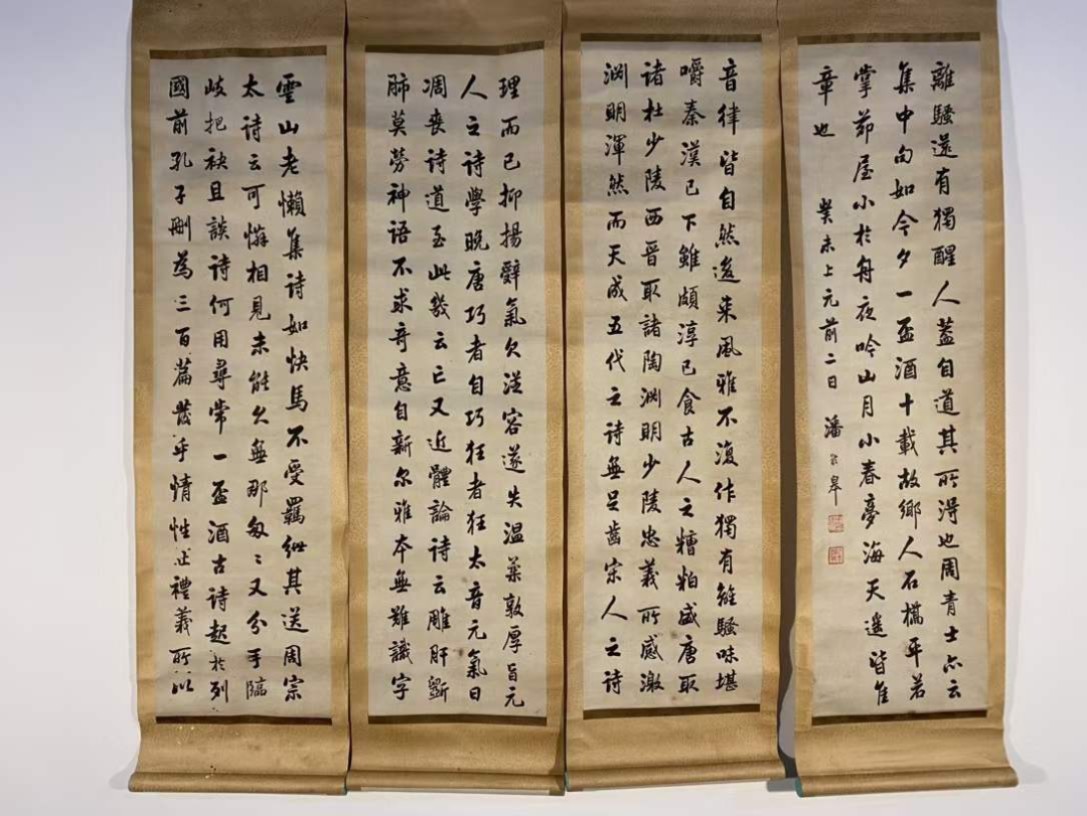 雲山老懶集詩如快馬不受羈紲其送周宗
太詩云可憐相見未能久無那匆々又分手臨
歧把袂且談詩何用尋常一盃酒古詩起於列
國前孔子刪為三百篇發乎情性止禮義所以
音律皆自然後來風雅不復作獨有離騷味堪
嚼秦漢已下雖頗淳已食古人之糟粕盛唐取
諸杜少陵西晉取諸陶淵明少陵忠義所感激
淵明渾然而天成五代之詩無足齒宋人之詩
理而已抑揚辭氣欠從容遂失温柔敦厚旨元
人之詩學晚唐巧者自巧狂者狂太音元氣日
凋喪詩道至此幾云亡又近體論詩云雕肝斲
肺莫勞神語不求奇意自新尔雅本無難識字
離騷還有獨醒人蓋自道其所得也周青士亦云
集中句如今夕一盃酒十載故鄉人石橋平若
掌茆屋小於舟夜吟山月小春夢海天遙皆佳
章也
癸未上元前二日 潘齡皋